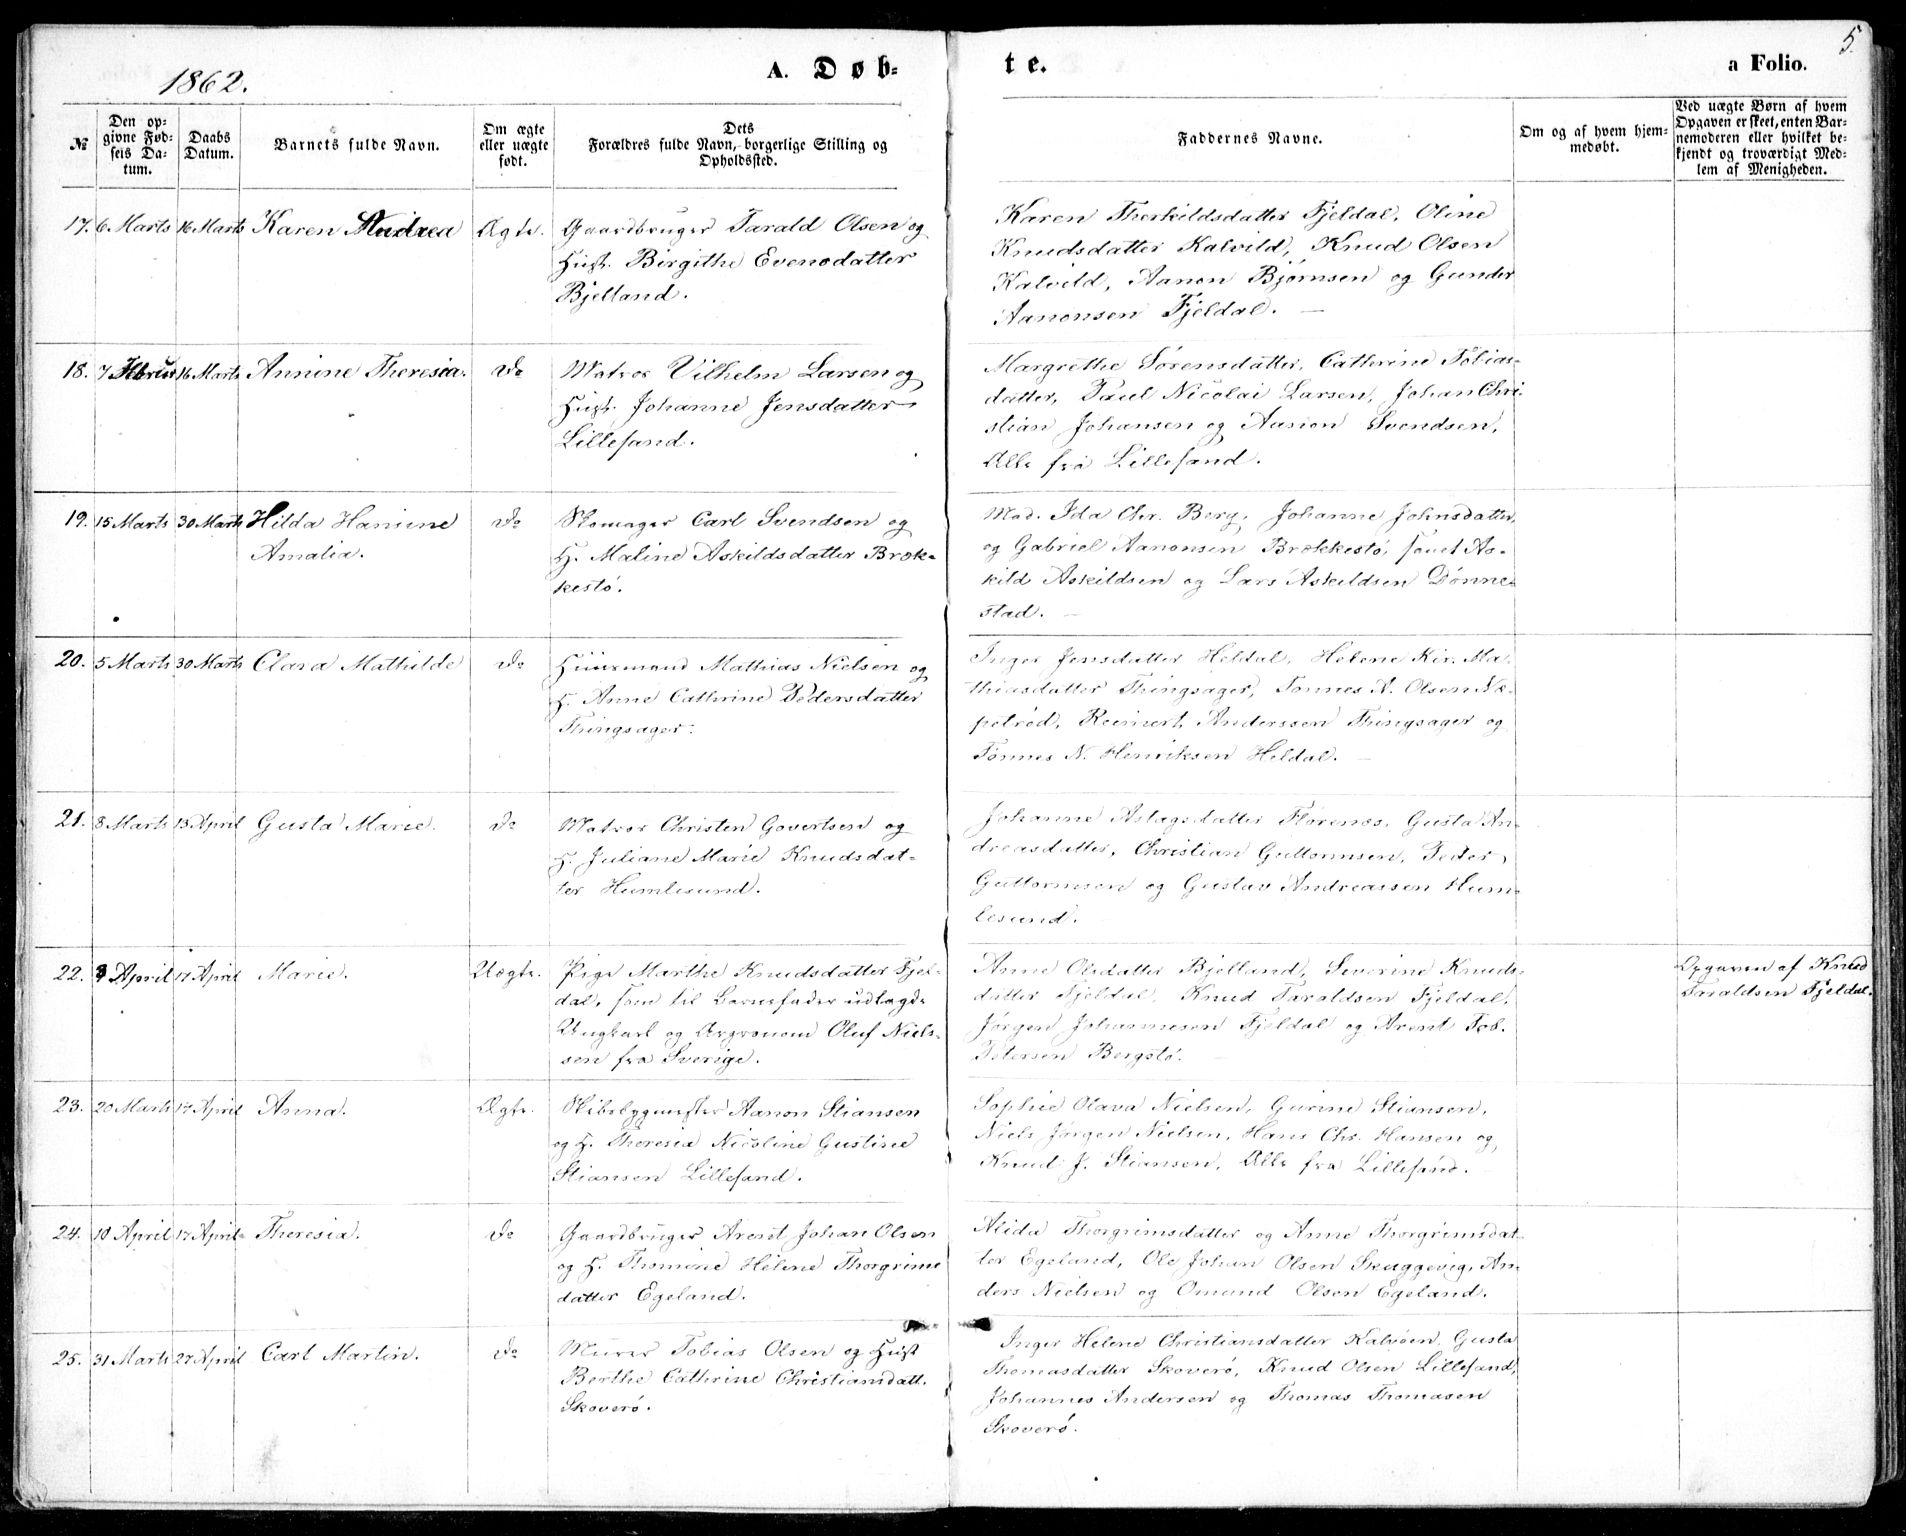 1862.
A. Døb-
te.
a Folio.
5.
№
Den op-
givne Fød-
sels Da-
tum.
Daabs
Datum.
Barnets fulde Navn.
Om ægte
eller uægte
født.
Dets
Forældres fulde Navn, borgerlige Stilling og
Opholdssted.
Faddernes Navne.
Om og af hvem hjem-
medøbt.
Ved uægte Børn af hvem
Opgaven er skeet, enten Bar-
nemoderen eller hvilket be-
kjendt og troværdigt Med-
lem af Menigheden.
17. 6 Marts 16 Marts Karen Andrea Ægte.
Gaardbruger Tarald Olsen og
Hust. Birgithe Evensdatter
Bjelland.
Karen Therkildsdatter Fjeldal, Oline
Knudsdatter Kalvild, Knud Olsen
Kalvild, Aanon Bjørnsen og Gunder
Aanonsen Fjeldal. —
18. 7 Februar 16 Marts Annine Theresia. do
Matros Vilhelm Larsen og
Hust. Johanne Jensdatter
Lillesand.
Margrethe Sørensdatter, Cathrine Tobias-
datter, Paul Nicolai Larsen, Johan Chri-
stian Johansen og Aanon Svendsen,
Alle fra Lillesand.
19. 15 Marts 30 Marts Hilda Hansine
Amalia. do
Skomager Carl Svendsen og
H. Maline Askildsdatter Bræk-
kestø.
Mad. Ida Chr. Berg, Johanne Johnsdatter,
og Gabriel Aanonsen Brækkestø, samt As-
kild Askildsen og Lars Askildsen Dønne-
stad. —
20. 5 Marts 30 Marts Clara Mathilde do
Huusmand Mathias Nielsen og
H. Anne Cathrine Pedersdatter
Thingsager.
Inger Jensdatter Heldal, Helene Kir. Ma-
thiasdatter Thingsager, Tønnes A. Olsen Næ-
petrød, Reinert Anderssen Thingsager og
Tønnes N. Henriksen Heldal. —
21. 8 Marts 13 April Gusta Marie. do
Matros Christen Govertsen og
H. Juliane Marie Knudsdat-
ter Humlesund.
Johanne Aslagsdatter Florenæs, Gusta An-
dreasdatter, Christian Guttormsen, Peder
Guttormsen og Gustav Andreassen Hum-
lesund.
22. 3 April 17 April Marie. Uægte.
Pige Marthe Knudsdatter Fjel-
dal, som til Barnefader udlagde
Ungkarl og Argronom Oluf Niels-
sen fra Sverige.
Anne Olsdatter Bjelland, Severine Knuds-
datter Fjeldal, Knud Taraldsen Fjeldal,
Jørgen Johannesen Fjeldal og Arent Tob.
Petersen Bergstø. —
Opgaven af Knud
Taraldsen Fjeldal.
23. 20 Marts 17 April Anna. Ægte.
Skibsbygmester Aanon Stiansen
og H. Theresia Nicoline Gustine
Stiansen Lillesand.
Sophie Olava Nielsen, Gurine Stiansen,
Niels Jørgen Nielsen, Hans Chr. Hansen og
Knud J. Stiansen, Alle fra Lillesand.
24. 10 April 17 April Theresia. do
Gaardbruger Arent Johan Olsen
og H. Thomine Helene Thorgrims
datter Egeland.
Alida Thorgrimsdatter og Anne Thorgrimsdat-
ter Egeland, Ole Johan Olsen Skuggevig, An-
ders Nielsen og Omund Olsen Egeland.
25. 31 Marts 27 April Carl Martin. do
Murer Tobias Olsen og Hust
Berthe Cathrine Christiansdatt.
Skoverø.
Inger Helene Christiansdatter Kalvøen, Gusta
Thomasdatter Skoverø, Knud Olsen Lillesand,
Johannes Andersen og Thomas Thomasen
Skoverø.